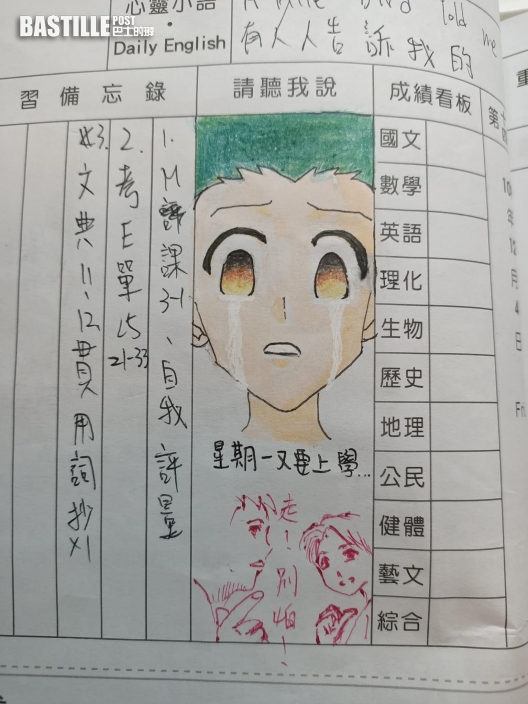 BASTILLE POST
巴士的報
心靈小語
・
Daily English
told me
有人人告訴我的
習備忘錄
請聽我說
成績看板
第
國文
數學
英語
理化
生物
歷史
地理
公民
健體
藝文
綜合
10年12月4日
Fri
1. M評課3-1、自我評量
2. 考E單L5
21-33
※3. 文典11、12頁用詞抄×1
星期一又要上學...
走!別怕!